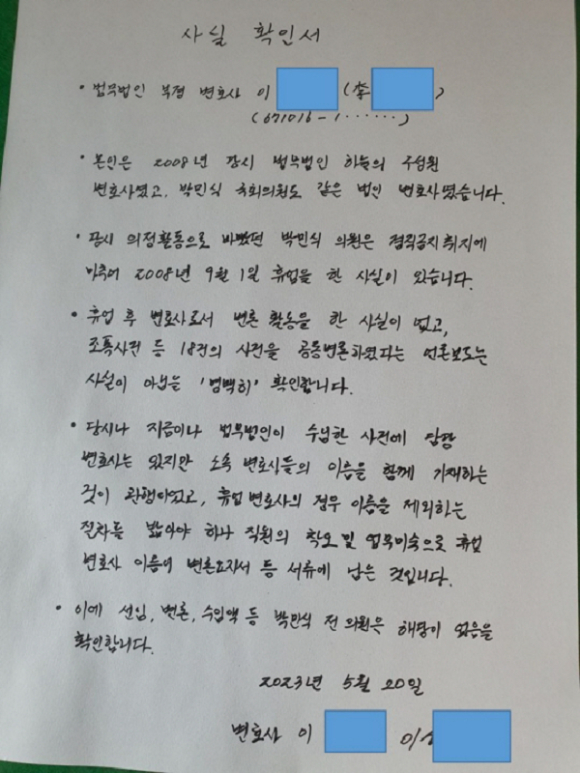 사실 확인서
· 법무법인 부경 변호사 이 (李 )
(671016-1······)
· 본인은 2008년 당시 법무법인 하늘의 구성원
변호사였고, 박민식 국회의원도 같은 법인 변호사였습니다.
· 당시 의정활동으로 바빴던 박민식 의원은 겸직금지 취지에
맞추어 2008년 9월 1일 휴업을 한 사실이 있습니다.
· 휴업 후 변호사로서 변론 활동을 한 사실이 없고,
조폭사건 등 18건의 사건을 공동변론하였다는 언론보도는
사실이 아님을 '명백히' 확인합니다.
· 당시나 지금이나 법무법인이 수임한 사건에 담당
변호사는 있지만 소속 변호사들의 이름을 함께 기재하는
것이 관행이었고, 휴업 변호사의 경우 이름을 제외하는
절차를 밟아야 하나 직원의 착오 및 업무미숙으로 휴업
변호사 이름이 변론요지서 등 서류에 남은 것입니다.
· 이에 선임, 변론, 수임액 등 박민식 전 의원은 해당이 없음을
확인합니다.
2023년 5월 20일
변호사 이